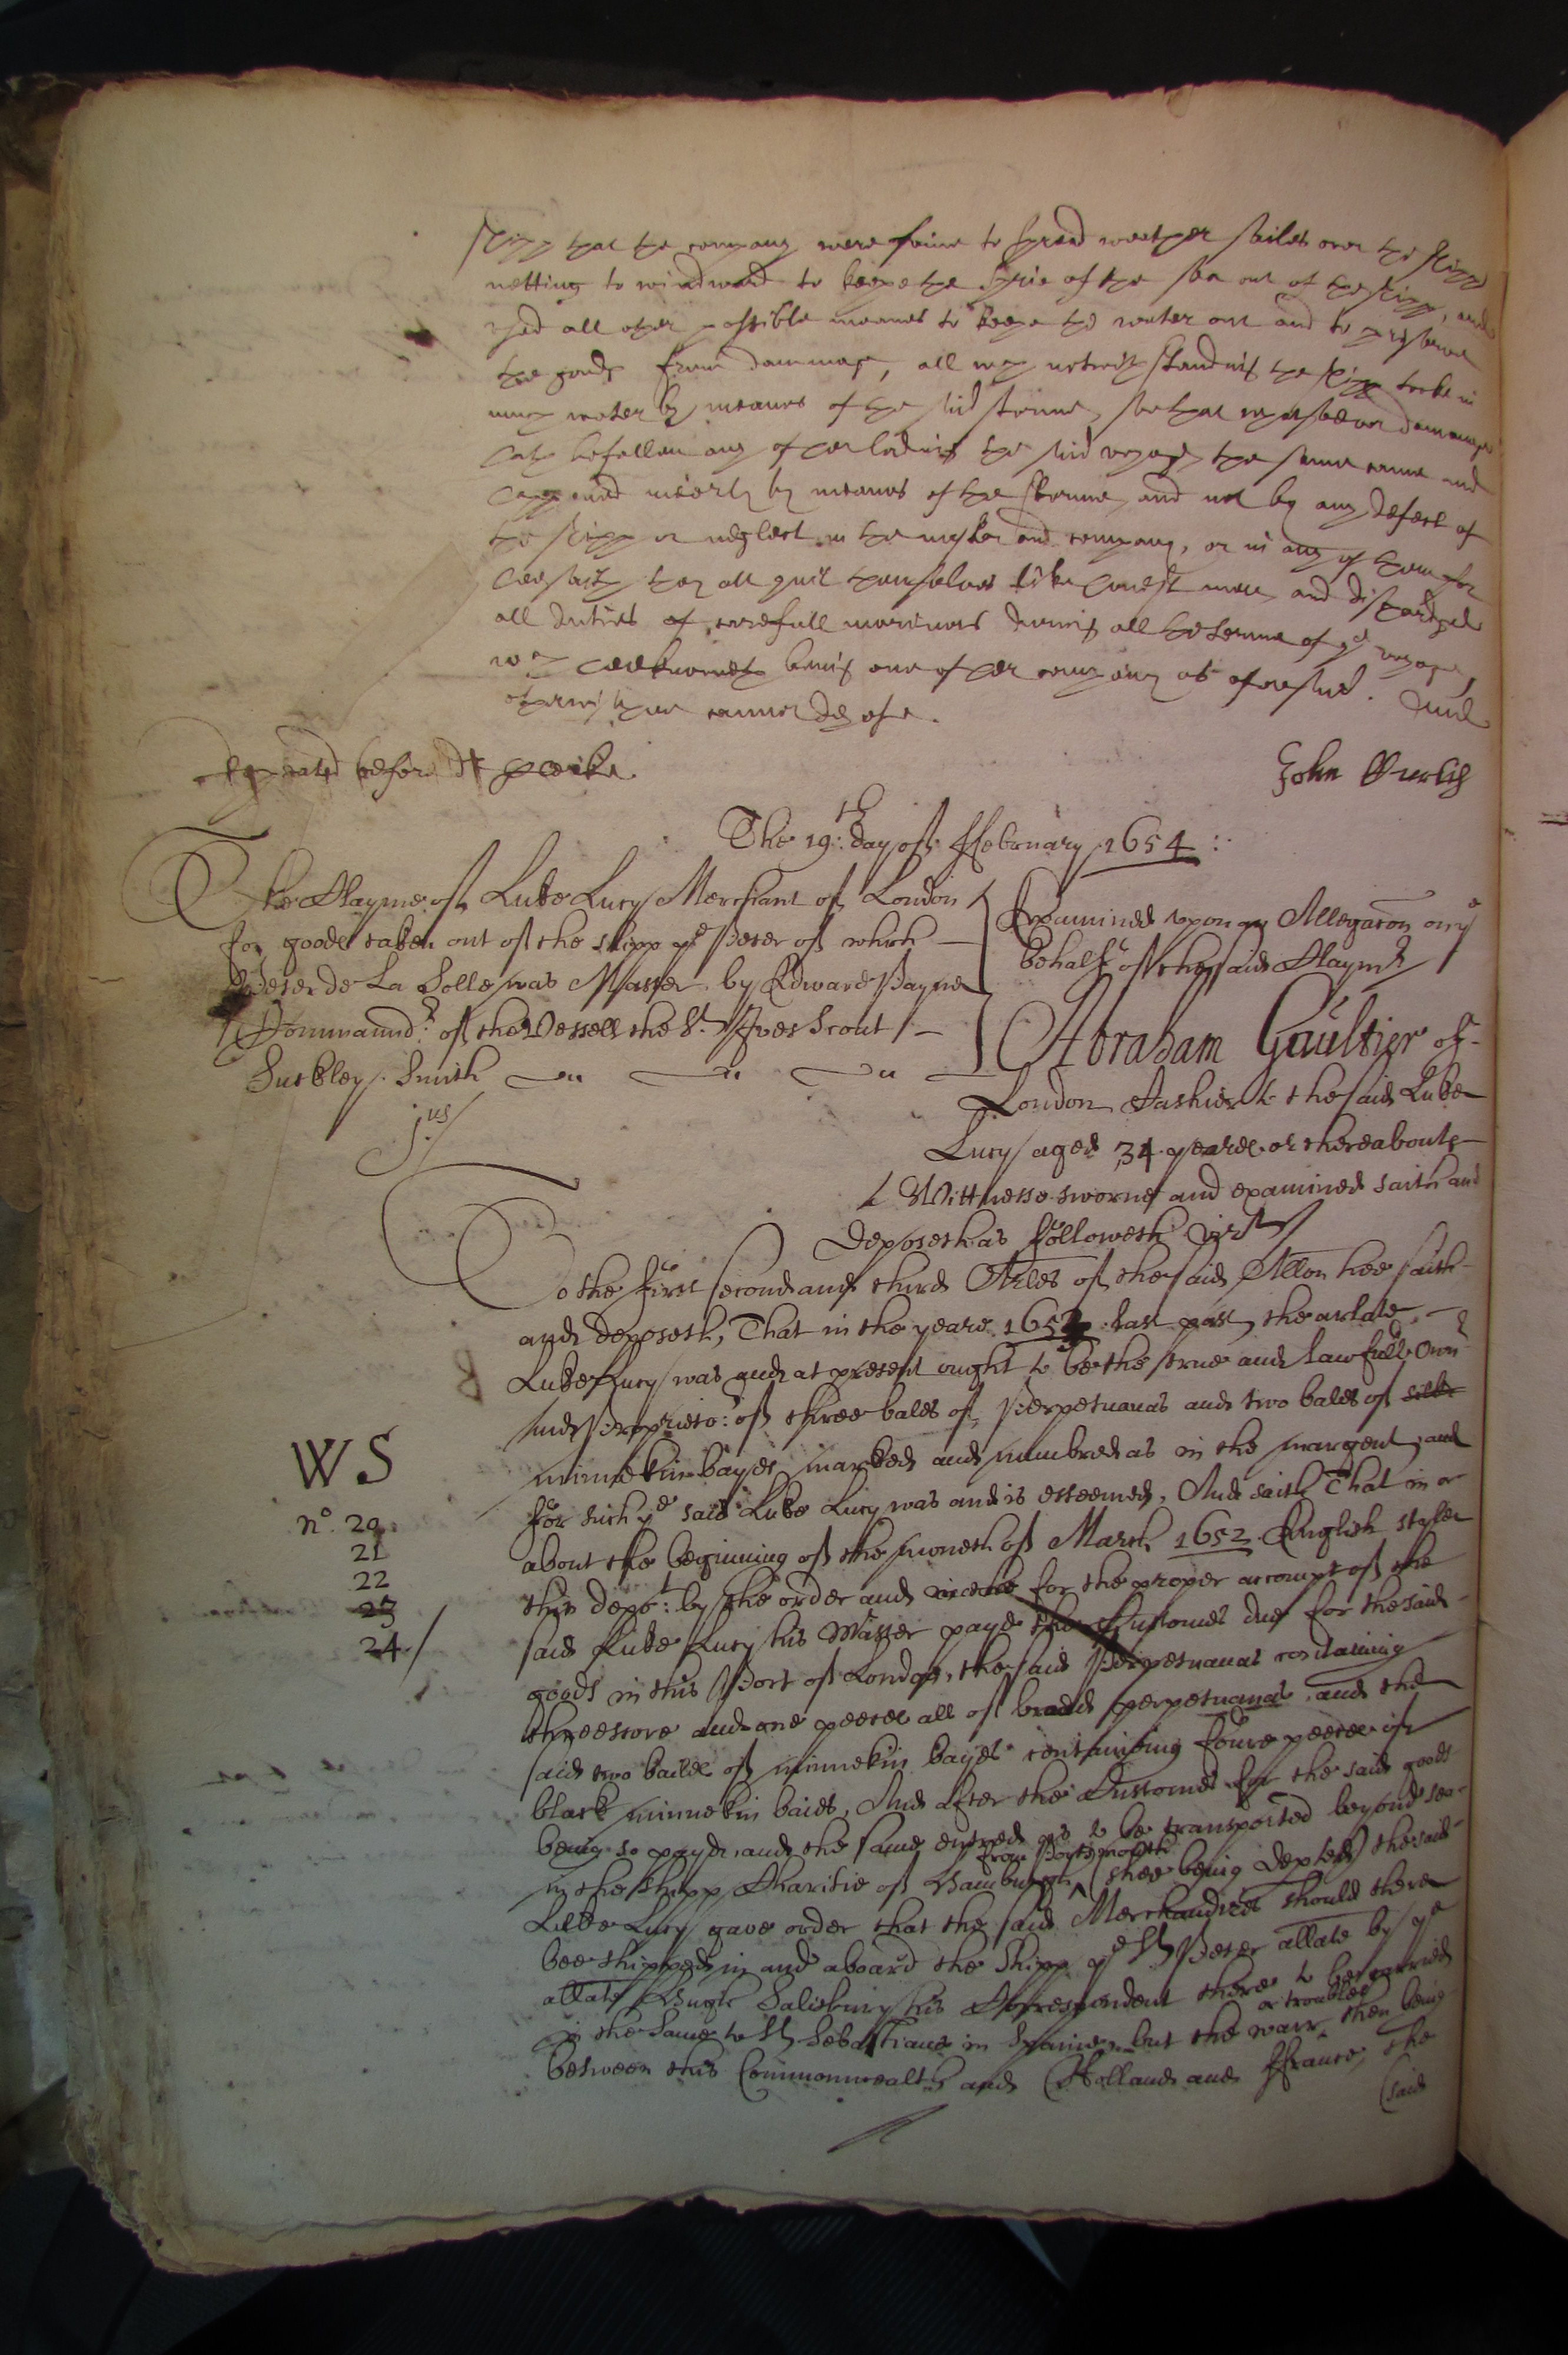 shipp that the company were faine to spread weather sailes over the shipps
netting to windward to keepe the sprie of the sea out of the shipp, and
used all other possible meanes to keepe the water out and to preserve
the goods from dammage, all wch notwithstanding the shipp tooke in
much water by meanes of the said storme, soe that whatsoever dammage
hath befallen any of her lading the said voyage, the same came and
happened meerly by meanes of the storme, and not by any defect of
the shipp or neglect in the master and company, or in any of them for
hee saith they all quit themselves like honest men, and discharged
all duties of carefull mariners during all the terme of ye voyage,
wch hee knoweth being one of her company as aforesaid. And
otherwise hee cannot depose.
Repeated before dr
John
The 19:th day of ffebruary 1654:
The Clayme of Luke Lucy Merchant of London
for goods taken out of the shipp ye Peter of which
Peter de La Solle was Master by Edward Payne
Commaundr: of the Vessell the St. Ives Scout
Suckley. Smith
jus
Examined upon an Allegaton on ye
behalfe of the said Claymr
Abraham Gaultier of
London Cashier to the said Luke
Lucy aged 34 yeares or thereabouts
A Wittnesse sworne and examined saith and
deposeth as followeth vizt
To the first second and third Arles of the said Allon hee saith
and deposeth, That in the yeare 1652 last past, the arlate
Luke Lucy was and at present ought to be the true and lawfull Ownr
and Proprieto:r of three bales of Perpetuanas and two bales of silke
minnekin bayes marked and numbred as in the margent, and
for such ye said Luke Lucy was and is esteemed, And saith That in or
about the beginning of the moneth of March 1652 English style
this depo:t by the order and for the proper accompt of the
said Luke Lucy his Master payde the Customes due for the said
goods in this Port of London, the said Perpetuanas containing
threescore and one peeces all of broade perpetuanas, and the
said two bailes of minnekin bayes containing foure peeces of
black minnekin baies, And after the Customes for the said goods
being so payde, and the same entred as to be transported beyond sea
from Portsmouth
in the shipp Charitie of Hamburgh (shee being depted) the said
Luke Lucy gave order that the said Merchandizes should there
bee shipped in and aboard the Shipp ye St Peter allate by ye
allate Hugh Salisbury his Correspondent there to bee carried
or troubles
in the same to St Sebastians in Spaine, but the warr then being
betweene this Commonwealth and Holland and ffrance, the
said
WS
no. 20
21
22
23
24